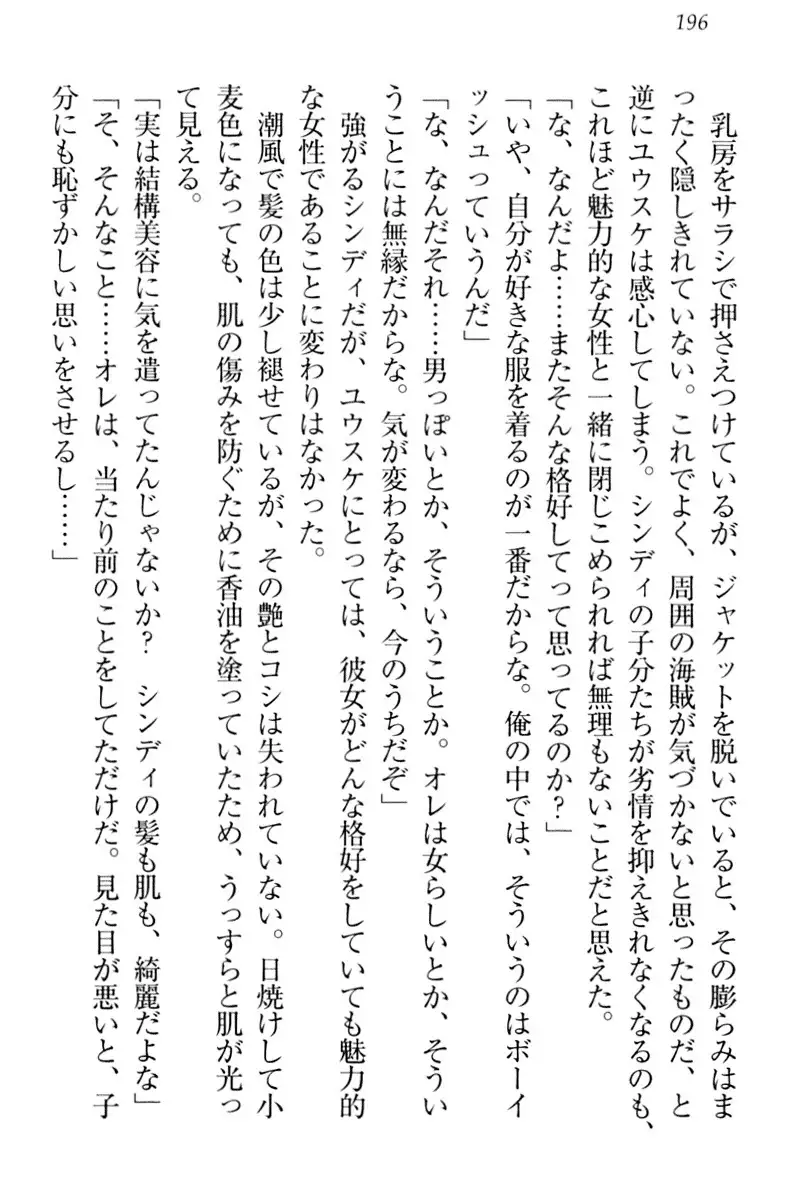 196
乳房をサラシで押さえつけているが、ジャケットを脱いでいると、その膨らみはま
ったく隠しきれていない。これでよく、周囲の海賊が気づかないと思ったものだ、と
逆にユウスケは感心してしまう。シンディの子分たちが劣情を抑えきれなくなるのも、
これほど魅力的な女性と一緒に閉じこめられれば無理もないことだと思えた。
「な、なんだよ……またそんな格好してって思ってるのか?」
「いや、自分が好きな服を着るのが一番だからな。俺の中では、そういうのはボーイ
ッシュっていうんだ」
「な、なんだそれ……男っぽいとか、そういうことか。オレは女らしいとか、そうい
うことには無縁だからな。気が変わるなら、今のうちだぞ」
強がるシンディだが、ユウスケにとっては、彼女がどんな格好をしていても魅力的
な女性であることに変わりはなかった。
潮風で髪の色は少し褪せているが、その艶とコシは失われていない。日焼けして小
麦色になっても、肌の傷みを防ぐために香油を塗っていたため、うっすらと肌が光っ
て見える。
「実は結構美容に気を遣ってたんじゃないか? シンディの髪も肌も、綺麗だよな」
「そ、そんなこと……オレは、当たり前のことをしてただけだ。見た目が悪いと、子
分にも恥ずかしい思いをさせるし……」